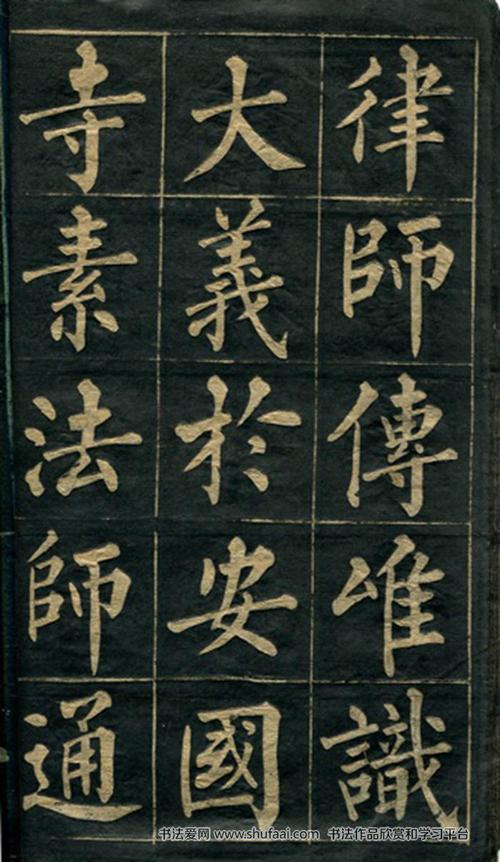 律師傳唯識
大義於安國
寺素法師通
书法爱网 www.shufaai.com 书法作品欣赏和学习平台